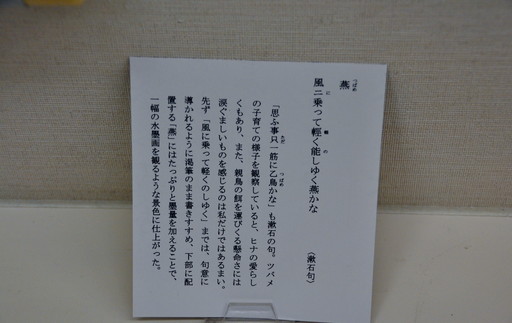 燕
つばめ
風ニ乗って軽く能しゆく燕かな
に
の
（漱石句）
「思ふ事只一筋に乙鳥かな」も漱石の句。ツバメ
ただ
つばめ
の子育ての様子を観察していると、ヒナの愛らし
くもあり、また、親鳥の餌を運びくる懸命さには
涙ぐましいものを感じるのは私だけではあるまい。
先ず「風に乗って軽くのしゆく」までは、句意に
導かれるように渇筆のまま書きすすめ、下部に配
置する「燕」にはたっぷりと墨量を加えることで、
一幅の水墨画を観るような景色に仕上がった。